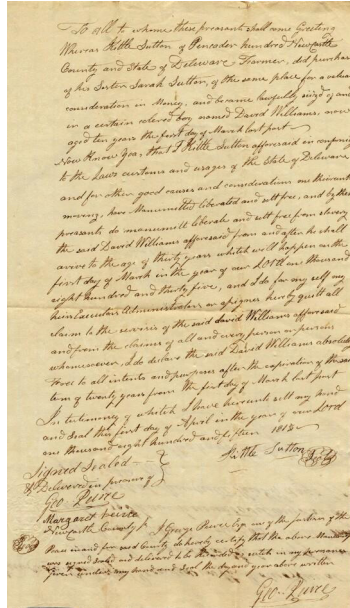 To all to whome these preasants shall come Greeting
Whereas Kittle Sutton of Pencader hundred Newcastle
County and State of Delaware Farmer, did purchase
of his Sister Sarah Sutton, of the same place for a valuable
consideration in Money, and became lawfully seized of and
in a certain colered boy named David Williams, now
aged ten years the first day of March last past
Now Know Yea, that I Kittle Sutton afforesaid in conformity
to the Laws customs and usages of the State of Delaware
and for other good causes and considerations me thereunto
moving, have Manumitted liberated and sett free, and by these
preasants do manumitt liberate and sett free from slavery
the said David Williams afforesaid from and after he shall
arive to the age of thirty years which will happen on the
first day of March in the year of our LORD one thousand
eight hundred and thirty five, and I do for my self my
heirs Executors Administrators or assigner hereby quitt all
claim to the service of the said david Williams afforesaid
and from the claimes of all and every person or persons
whomsoever, I do declare the said David Williams absolutely
Free to all intents and purposes after the expiration of the said
term of twenty years from the first day of March last past
In testimony of which I have hereunto sett my hand
and Seal this first day of April in the year of our Lord
one thousand eight hundred and fifteen 1815
Signed Sealed
& Delivered in presence of
Kittle Sutton
Geo Peirce
Margaret Peirce
Newcastle County I George Peirce Esqr one of the justices of the
Peace in and for said County do hereby certify that the above Manumission
was signed Seald and delivered to be the deed in my preasance
given under my hand and Seal the day and year above written
Geo Peirce